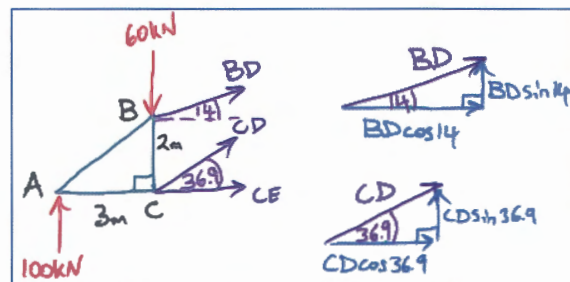 60kN
BD
B
14
2m
CD
36.9
A
3m
C
CE
100kN
BD
14
BDsin14
BDcos14
CD
36.9
CDsin36.9
CDcos36.9